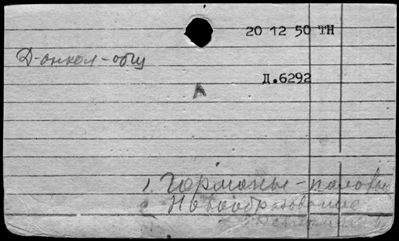 20 12 50 ТН
Д-онкол-общ
Д.6292
А
1. Гормоны-половые
2. Новообразование